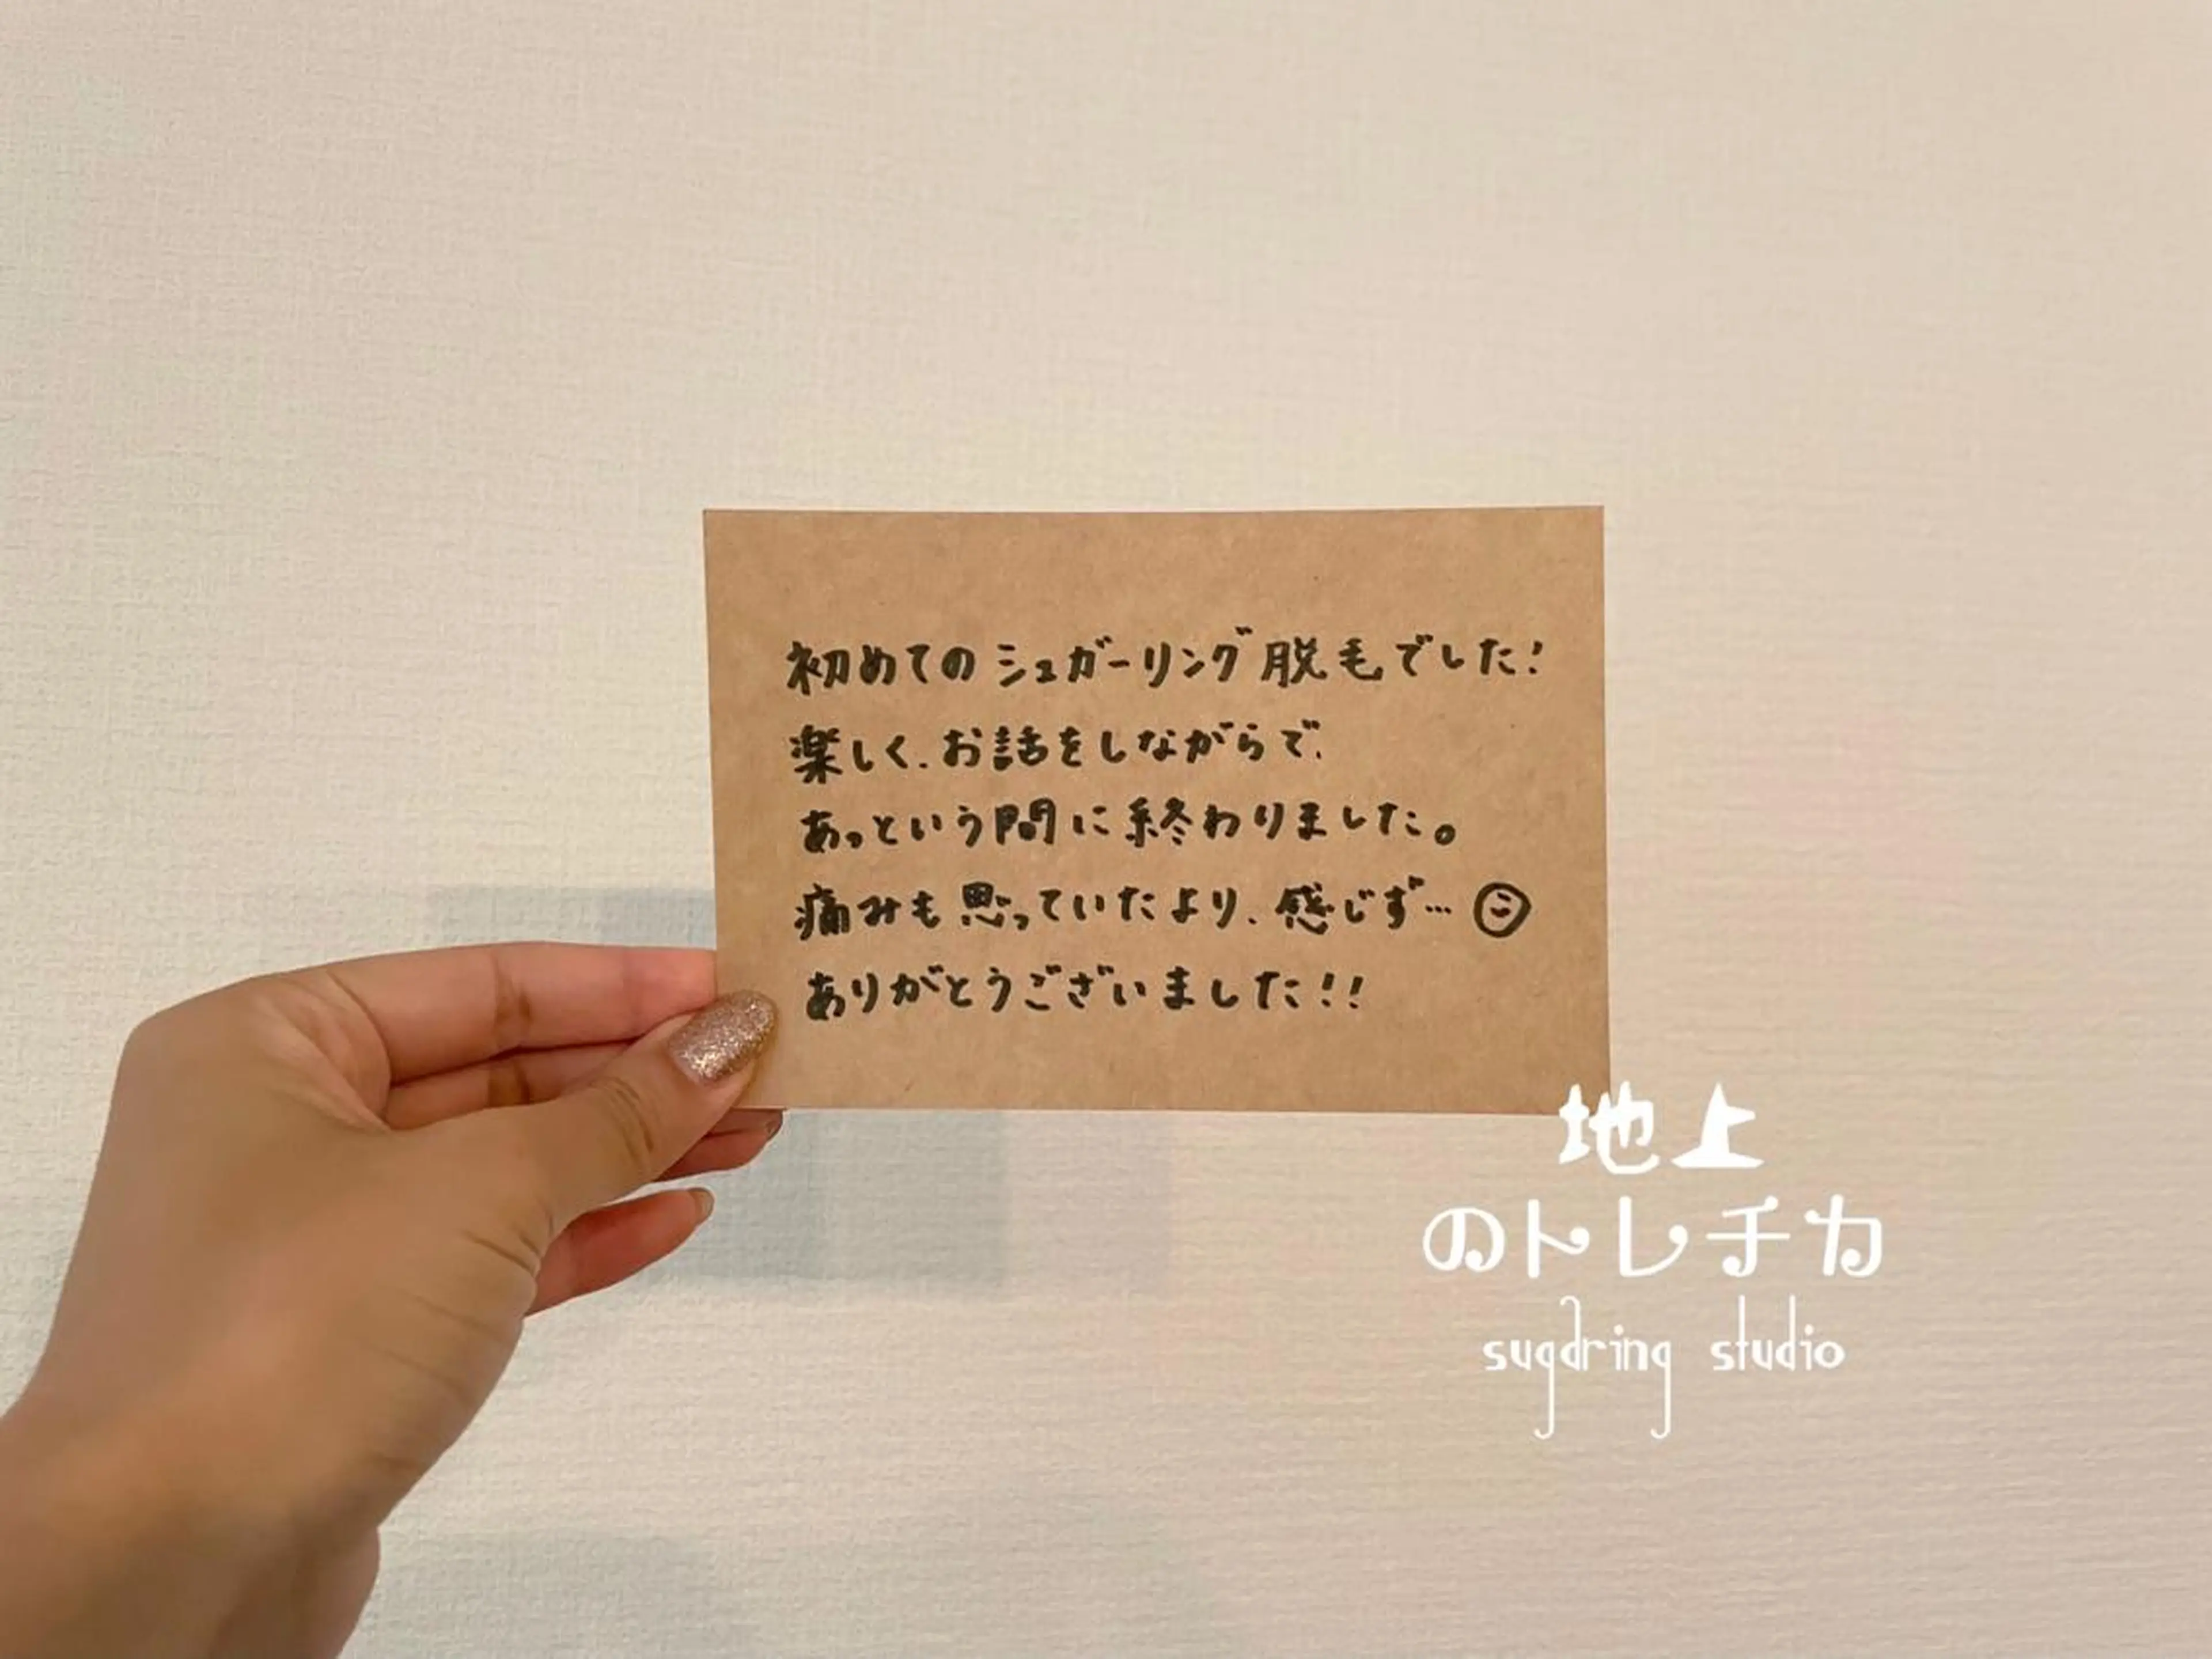 初めてのシュガーリング脱毛でした!
楽しく、お話をしながらで、
あっという間に終わりました。
痛みも思っていたより、感じず…
ありがとうございました!!
地上
のトレチカ
sugaring studio